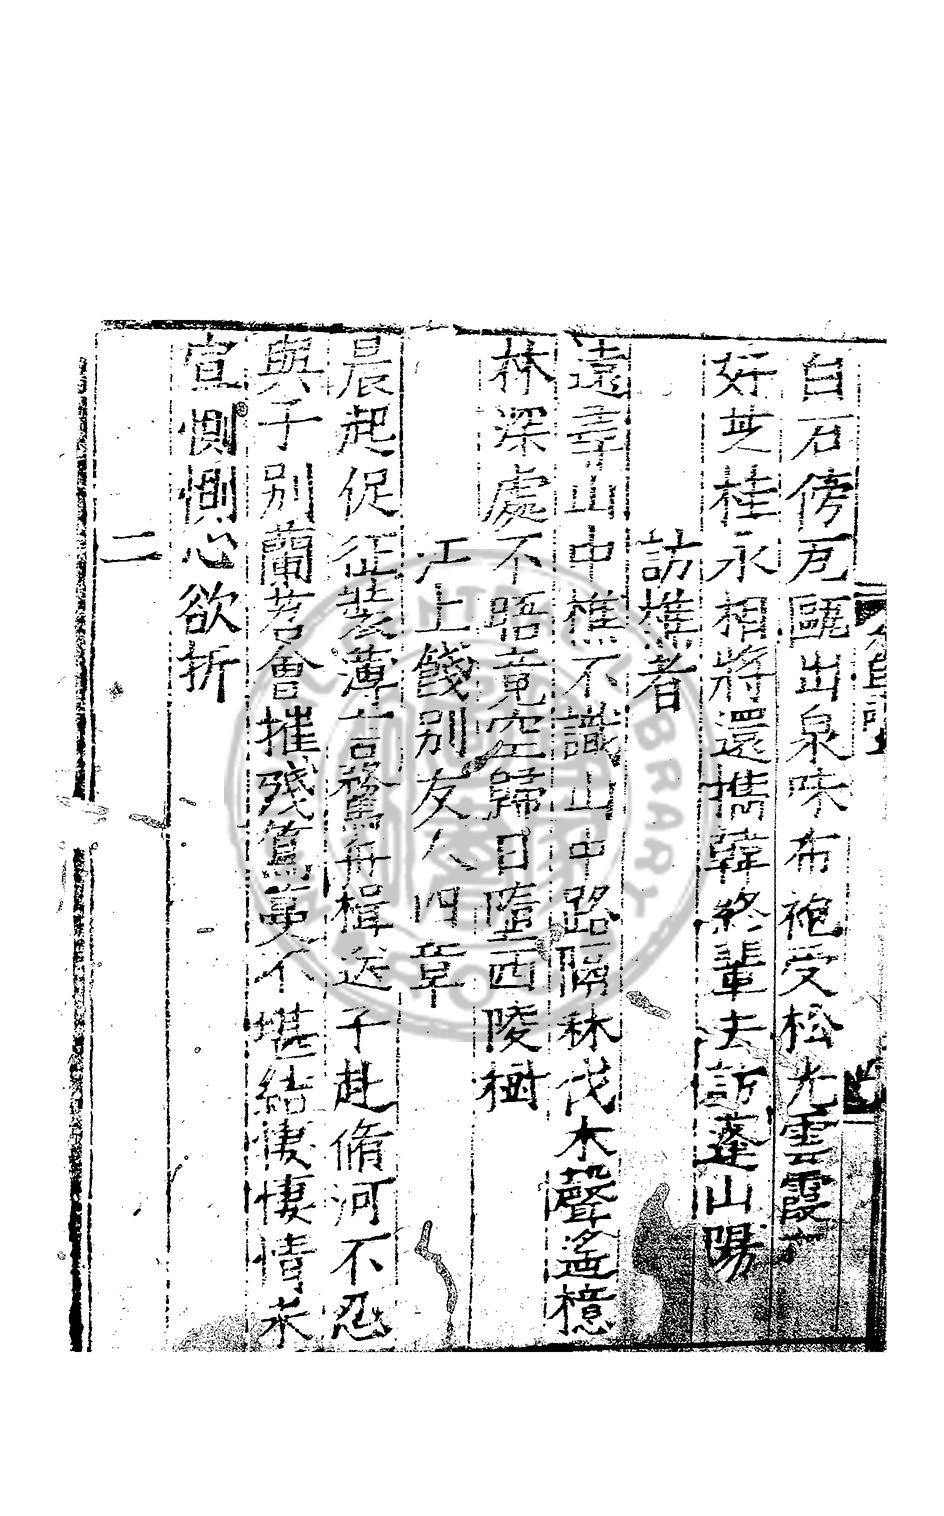 白石傍瓦甌出泉味布袍受松光雲霞
好芝桂永相將還擕韓終輩去訪蓬山陽
訪樵者
遠尋山中樵不識山中路隔林伐木聲遙憶
林深處不晤竟空歸日墮西陵樹
江上餞別友人四章
晨起促征裝薄言驚舟楫送子赴脩河不忍
與子別蘭茗會摧殘篤夷不堪結悽悽情未
宣惻惻心欲折
二